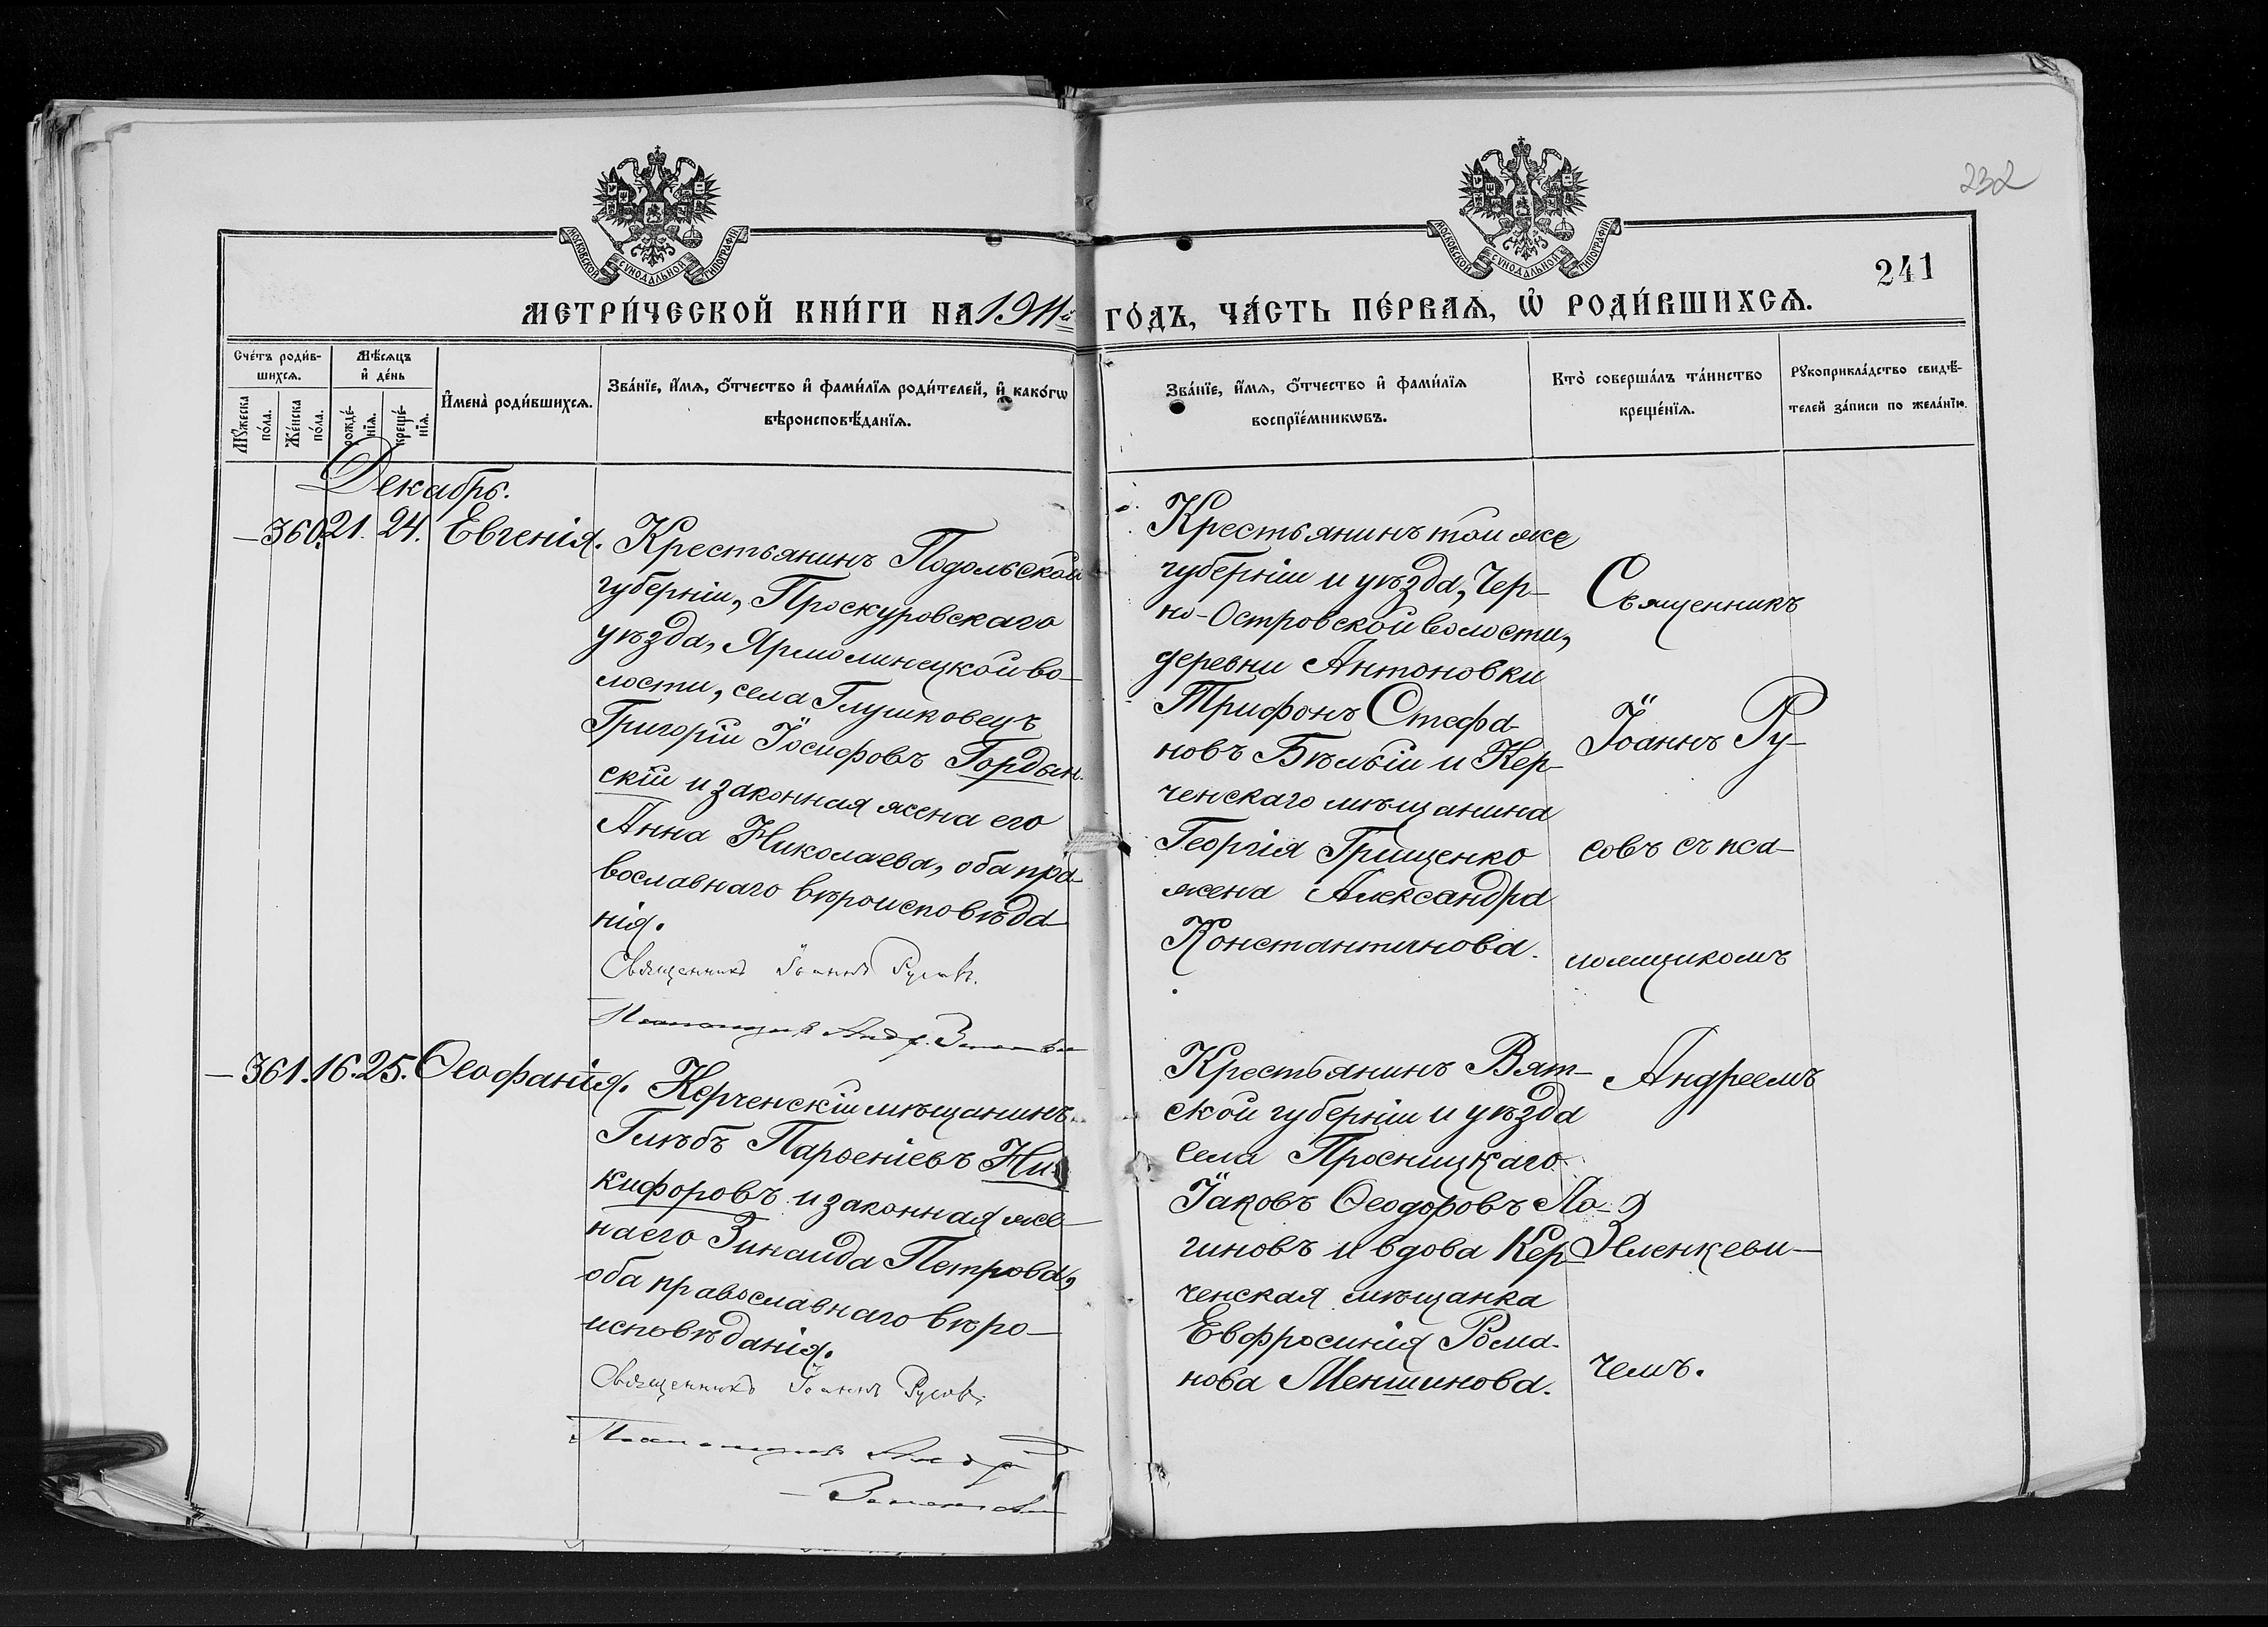 232
241
МОСКОВСКОЙ СѴНОДАЛЬНОЙ ТИПОГРАФІИ
МОСКОВСКОЙ СѴНОДАЛЬНОЙ ТИПОГРАФІИ
МЕТРИ́ЧЕСКОЙ КНИ́ГИ НА 1911й ГО́ДЪ, ЧА́СТЬ ПЕ́РВАѦ, Ѽ РОДИ́ВШИХСѦ.
Сче́тъ роди́в-
шихсѧ.
Мѣ́сѧцъ
и҆ де́нь
Мꙋ́жеска
по́ла.
Же́нска
по́ла.
рожде́-
нїѧ.
креще́-
нїѧ.
И҆мена̀ роди́вшихсѧ.
Зва́нїе, и҆́мѧ, ѻ҆́тчество и҆ фами́лїѧ роди́телей, и҆ како́гѡ
вѣроисповѣ́данїѧ.
Зва́нїе, и҆́мѧ, ѻ҆́тчество и҆ фами́лїѧ
воспрїе́мникѡвъ.
Кто̀ соверша́лъ та́инство
креще́нїѧ.
Рꙋкоприкла́дство свидѣ́-
телей за́писи по жела́нїю.
Декабрь.
— 360. 21. 24. Евгенія.
Крестьянинъ Подольской
губерніи, Проскуровскаго
уѣзда, Ярмолинецкой во-
лости, села Глушковецъ
Григорій Іосифовъ Гордын-
скій и законная жена его
Анна Николаева, оба пра-
вославнаго вѣроисповѣда-
нія.
Священникъ Іоаннъ Русовъ.
Псаломщикъ Андр.
Крестьянинъ той же
губерніи и уѣзда, Чер-
но-Островской волости,
деревни Антоновки
Трифонъ Стефа-
новъ Бѣлый и Кер-
ченскаго мѣщанина
Георгія Грищенко
жена Александра
Константинова.
Священникъ
Іоаннъ Ру-
совъ съ пса-
ломщикомъ
— 361. 16. 25. Ѳеофанія.
Керченскій мѣщанинъ
Глѣбъ Парѳеніевъ Ни-
кифоровъ и законная же-
на его Зинаида Петрова,
оба православнаго вѣро-
исповѣданія.
Священникъ Іоаннъ Русовъ.
Псаломщикъ Андр
Крестьянинъ Вят-
ской губерніи и уѣзда
села Просницкаго
Іаковъ Ѳеодоровъ Ло-
гиновъ и вдова Кер-
ченская мѣщанка
Евфросинія Рома-
нова Меншинова.
Андреемъ
Зеленкеви-
чемъ.